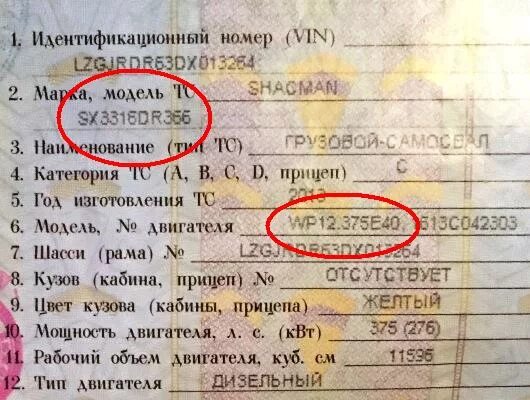 1. Идентификационный номер (VIN)
LZGJRDR63DX013264
2. Марка, модель ТС SHACMAN
SX3316DR366
3. Наименование (тип ТС) ГРУЗОВОЙ-САМОСВАЛ
4. Категория ТС (A, B, C, D, прицеп) C
5. Год изготовления ТС 2013
6. Модель, № двигателя WP12.375E40, 1513C042303
7. Шасси (рама) № LZGJRDR63DX013264
8. Кузов (кабина, прицеп) № ОТСУТСТВУЕТ
9. Цвет кузова (кабины, прицепа) ЖЕЛТЫЙ
10. Мощность двигателя, л. с. (кВт) 375 (276)
11. Рабочий объем двигателя, куб. см 11596
12. Тип двигателя ДИЗЕЛЬНЫЙ